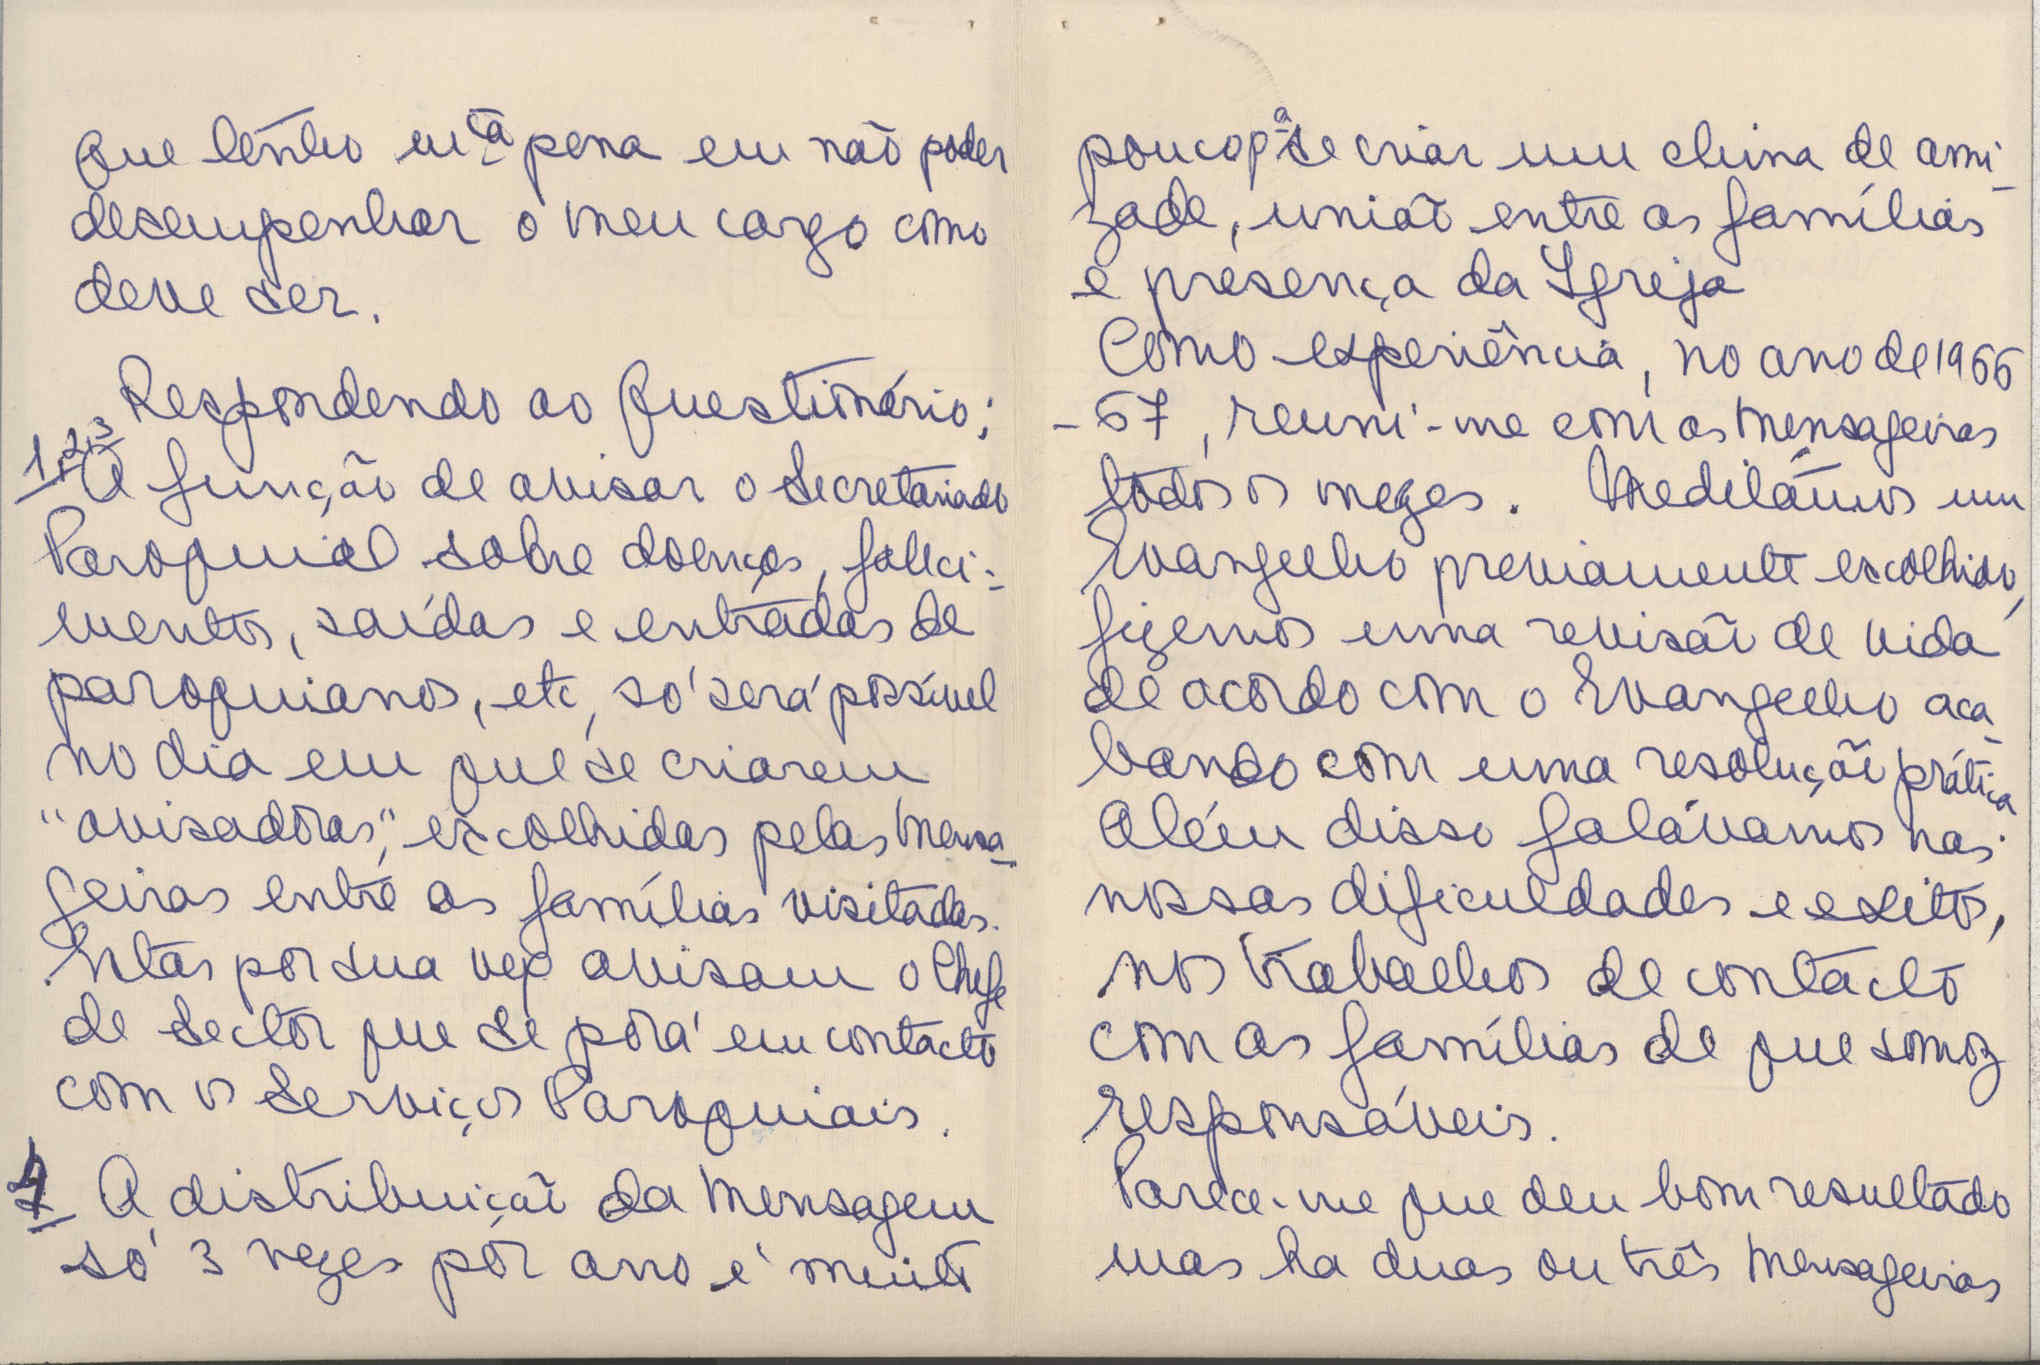 que tenho mta pena em não poder
desempenhar o meu cargo como
deve ser.
Respondendo ao Questionário:
1,2,3 A função de avisar o Secretariado
Paroquial sobre doenças, faleci-
mentos, saídas e entradas de
paroquianos, etc, só será possível
no dia em que se criarem
"avisadoras," escolhidas pelas Mensa-
geiras entre as famílias visitadas.
Estas por sua vez avisam o Chefe
de Sector que se porá em contacto
com os Serviços Paroquiais.
4 A distribuição da Mensagem
só 3 vezes por ano é muito
pouco pa se criar um clima de ami-
zade, união entre as famílias
e presença da Igreja
Como experiência, no ano de 1966
-67, reuni-me com as Mensageiras
todos os mezes. Meditámos um
Evangelho previamente escolhido,
fizemos uma revisão de vida
de acordo com o Evangelho aca-
bando com uma resolução prática
Além disso falávamos nas
nossas dificuldades e exitos,
nos trabalhos de contacto
com as famílias de que somos
responsáveis.
Parece-me que deu bom resultado
mas ha duas ou três Mensageiras